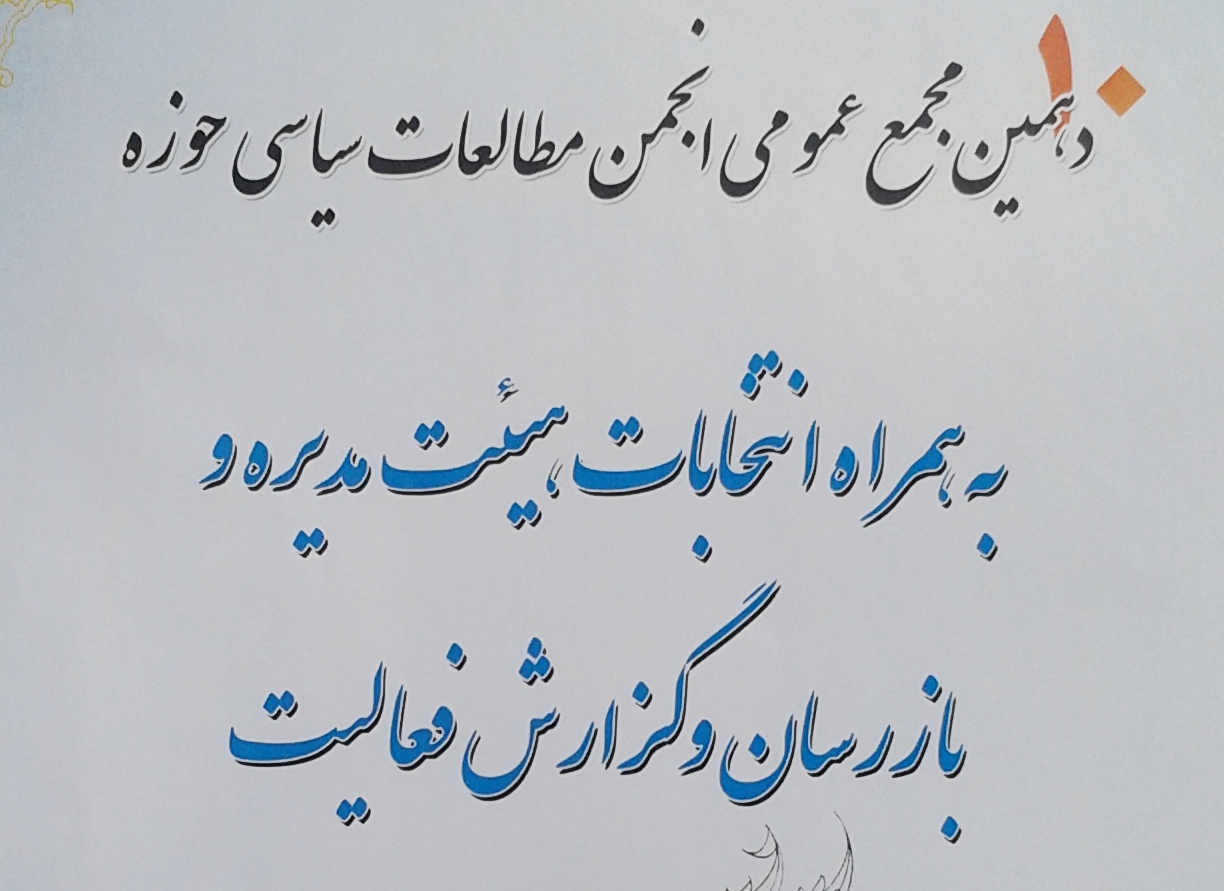 ۱۰
دهمین مجمع عمومی انجمن مطالعات سیاسی حوزه
به همراه انتخابات هیئت مدیره و
بازرسان و گزارش فعالیت